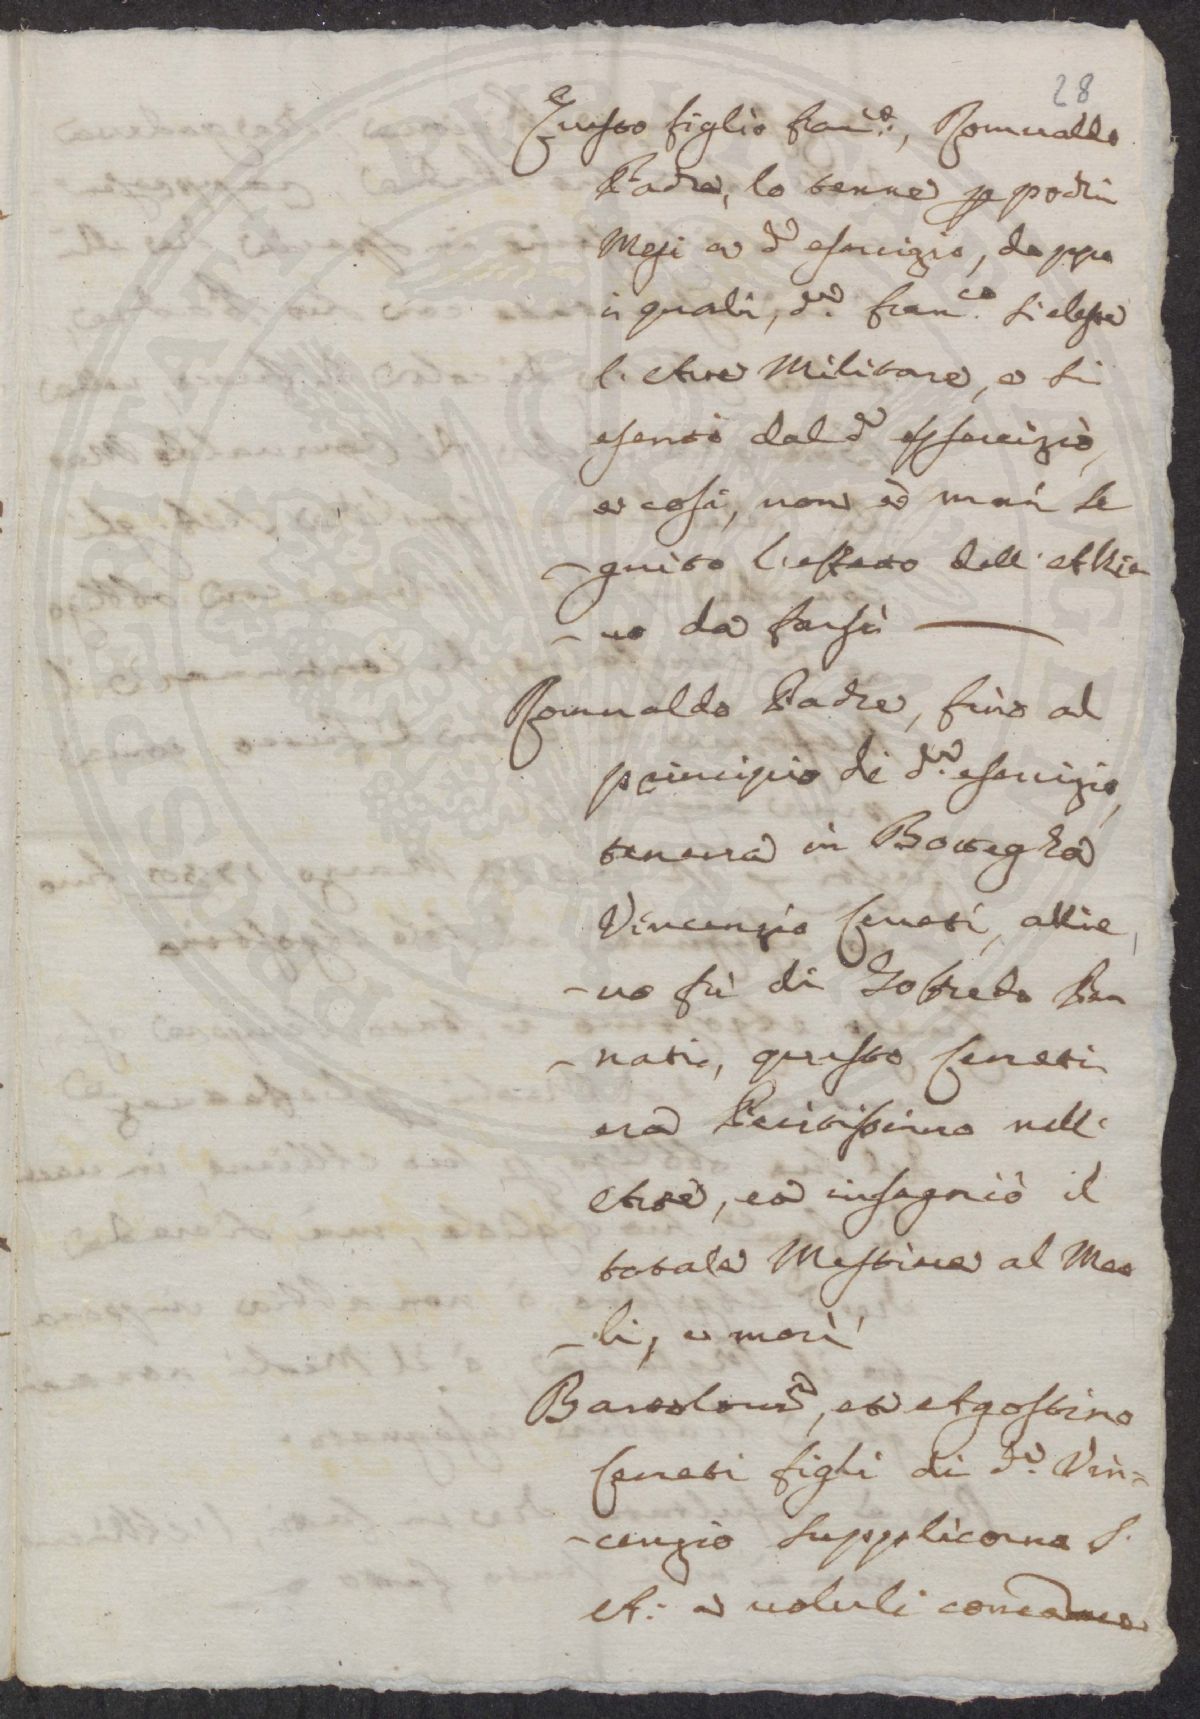 28
Questo figlio Fran.co, Romualdo
Padre, lo tenne p pochi
Mesi a d.o esercizio, doppo
i quali, d.o Fran.co si elesse
l'Arte Militare, e si
esentò dal d.o essercizio,
e così, non è mai se
-guito l'effetto dell'Allie
-vo da farsi
Romualdo Padre, fino al
principio di d.o esercizio,
teneva in Bottegha
Vincenzio Ceneti, allie
-vo fù di Gofredo Ben
-nati, questo Ceneti
era Peritissimo nell'
Arte, ed insegniò il
totale Mestiere al Meo
-li, e morì
Bartolom.o, et Agostino
Ceneti figli di d.o Vin=
-cenzio supplicorno S.
A: a volerli